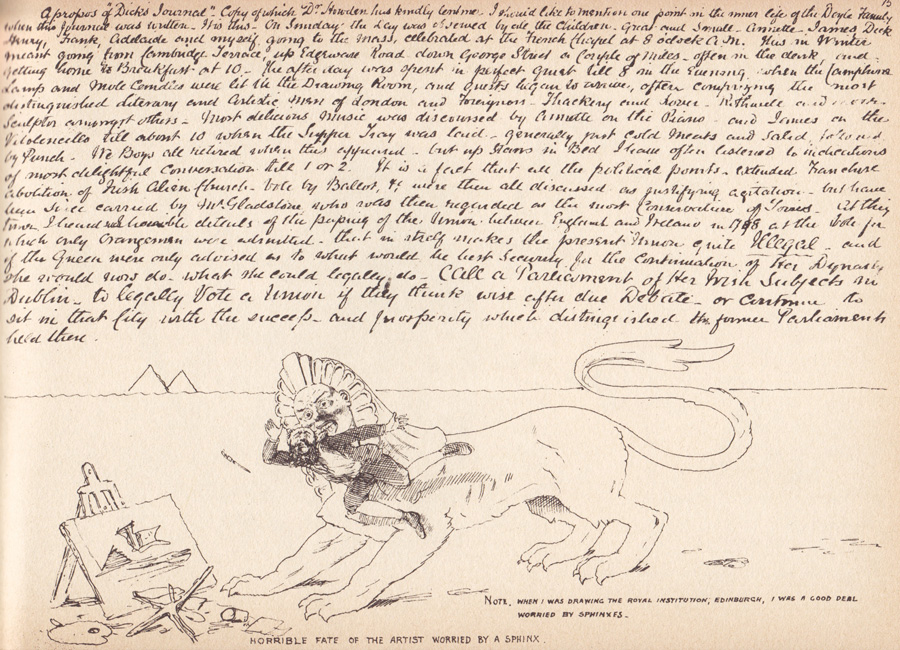 15
Apropos of "Dick's Journal". Copy of which Dr. Howden has kindly lent me. I should like to mention one point in the inner life of the Doyle Family
when this Journal was written. It is this - On Sunday the day was observed by all the Children. Great and Small - Annette - James Dick
Henry, Frank, Adelaide and myself going to the Mass, celebrated at the French Chapel at 8 o'clock A.M. This in Winter
meant going from Cambridge Terrace, up Edgeware Road down George Street a Couple of Miles - often in the dark, and
getting home to Breakfast at 10 - The after day was spent in perfect Quiet till 8 in the evening, when the Camphine
Lamps and Mole Candles were lit in the Drawing Room, and guests began to arrive, often comprising the most
distinguished Literary and Artistic Men of London and Foreigners - Thackery and Rothwell
Sculptor amongst others - Most delicious Music was discoursed by Annette on the Piano - and James on the
Violoncello till about 10 when the Supper Tray was laid - generally just cold Meats and Salad, followed
by Punch - We Boys all retired when this appeared - but up Stairs in Bed I have often listened to indications
of most delightful Conversation till 1 or 2. It is a fact that all the political points - extended Franchise
abolition of Irish Alien Church - Vote by Ballot, &c were then all discussed as justifying agitation - but have
been since carried by Mr. Gladstone who was then regarded as the most Conservative of Tories - At this
time I heard horrible details of the passing of the Union between England and Ireland in 1798 at the Vote for
which only Orangemen were admitted - that in itself makes the present Union quite Illegal - and
if the Queen were only advised as to what would be best Security for the Continuation of Her Dynasty
She would now do - what she could legally do - Call a Parliament of Her Irish Subjects in
Dublin - to legally Vote a Union if they think wise after due Debate - or Continue to
sit in that City with the success - and Prosperity which distinguished the former Parliaments
held there.
NOTE. WHEN I WAS DRAWING THE ROYAL INSTITUTION, EDINBURGH, I WAS A GOOD DEAL
WORRIED BY SPHINXES.
HORRIBLE FATE OF THE ARTIST WORRIED BY A SPHINX.